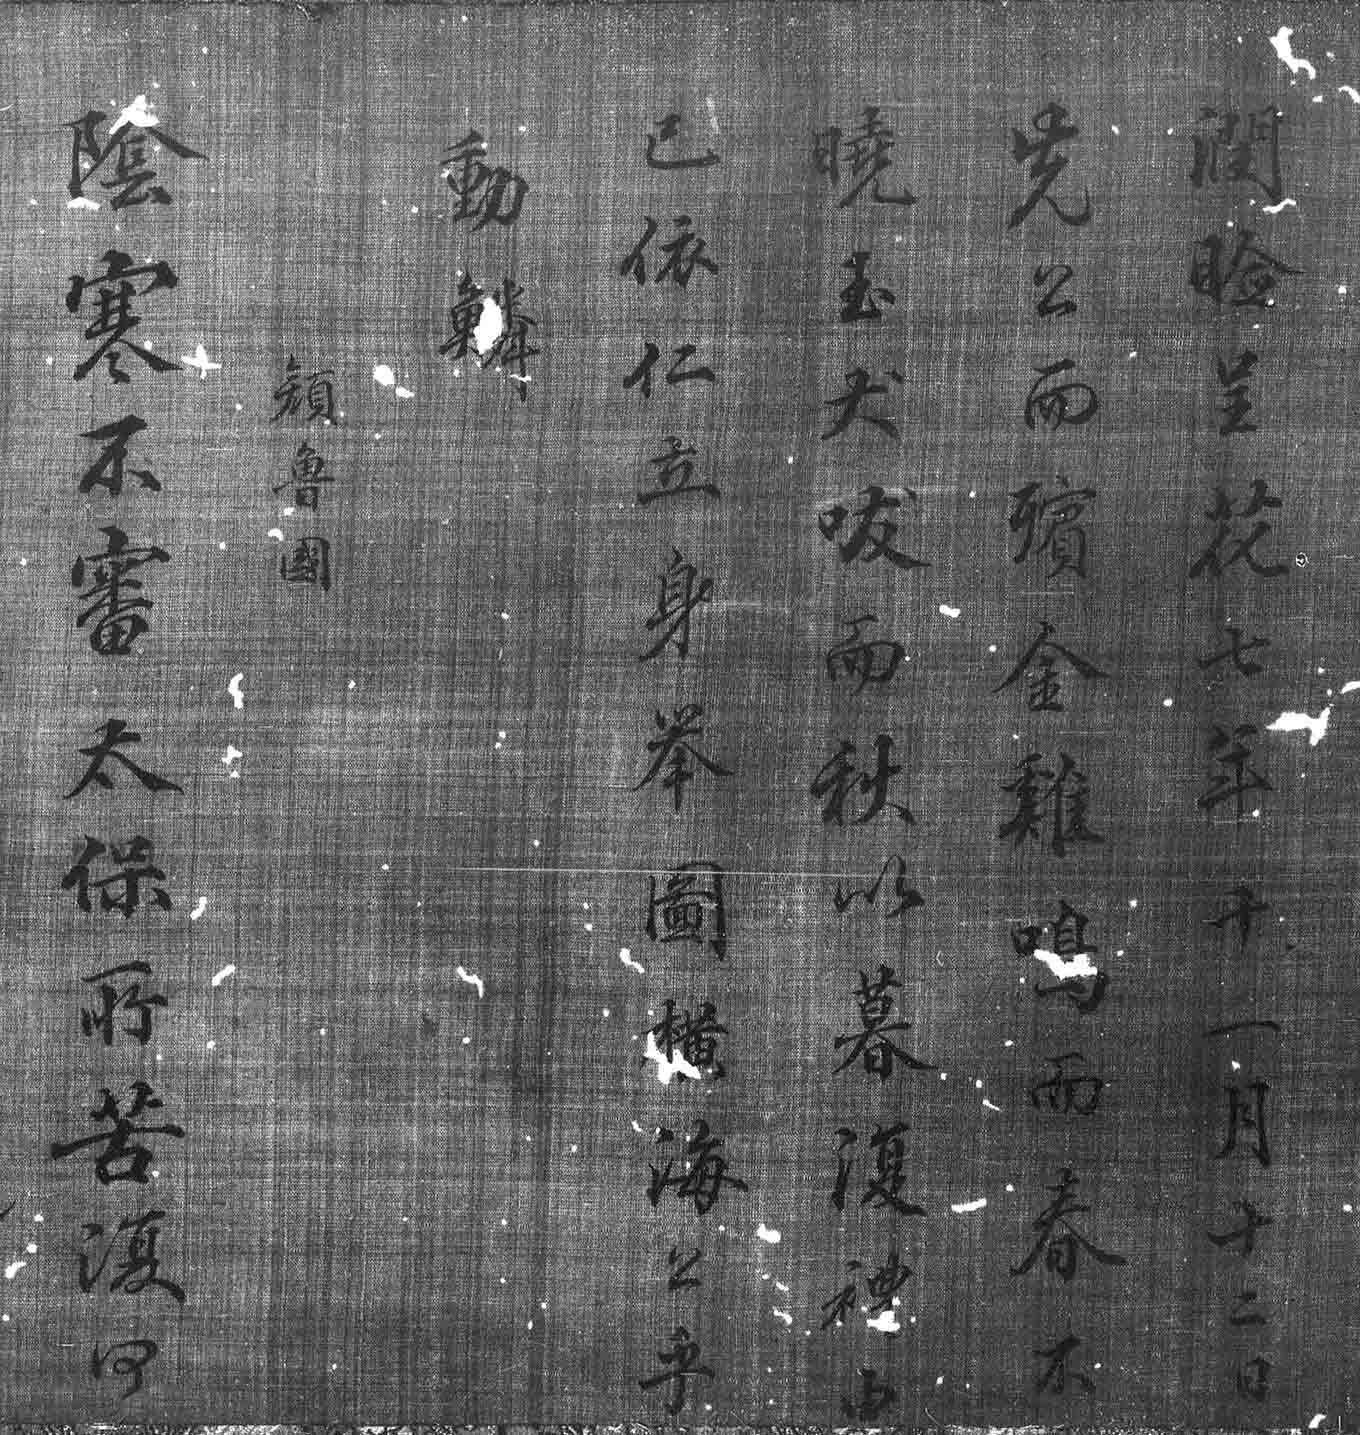 潤臉呈花七年十一月十二日
先公而殯金雞鳴而春不
曉玉犬吠而秋以暮復禮由
己依仁立身举圖橫海公乎
動鱗
顏魯國
陰寒不審太保所苦復何